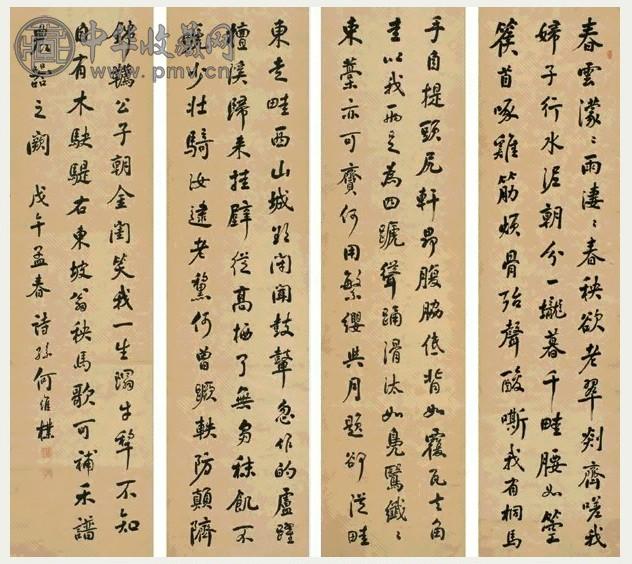 中华收藏网
www.pmv.cn
春雲濛〻雨淒〻春秧欲老翠剡齊嗟我
婦子行水泥朝分一壠暮千畦腰如箜
篌首啄雞筋煩骨殆聲酸嘶我有桐馬
手自提頭尻軒昂腹脇低背如覆瓦去角
圭以我兩足為四蹏聳踊滑汰如鳧鷖纖〻
束藁亦可賷何用繁纓與月題卻從畦
東走畦西山城欲閉聞鼓鼙忽作的盧躍
檀溪歸來挂壁從高栖了無芻秣飢不
嗁少壯騎汝逮老黧何曾蹶軼防顛隮
錦韉公子朝金閨笑我一生蹋牛犂不知
自有木駃騠右東坡翁秧馬歌可補禾譜
農器之闕 戊午孟春 詩孫何維樸